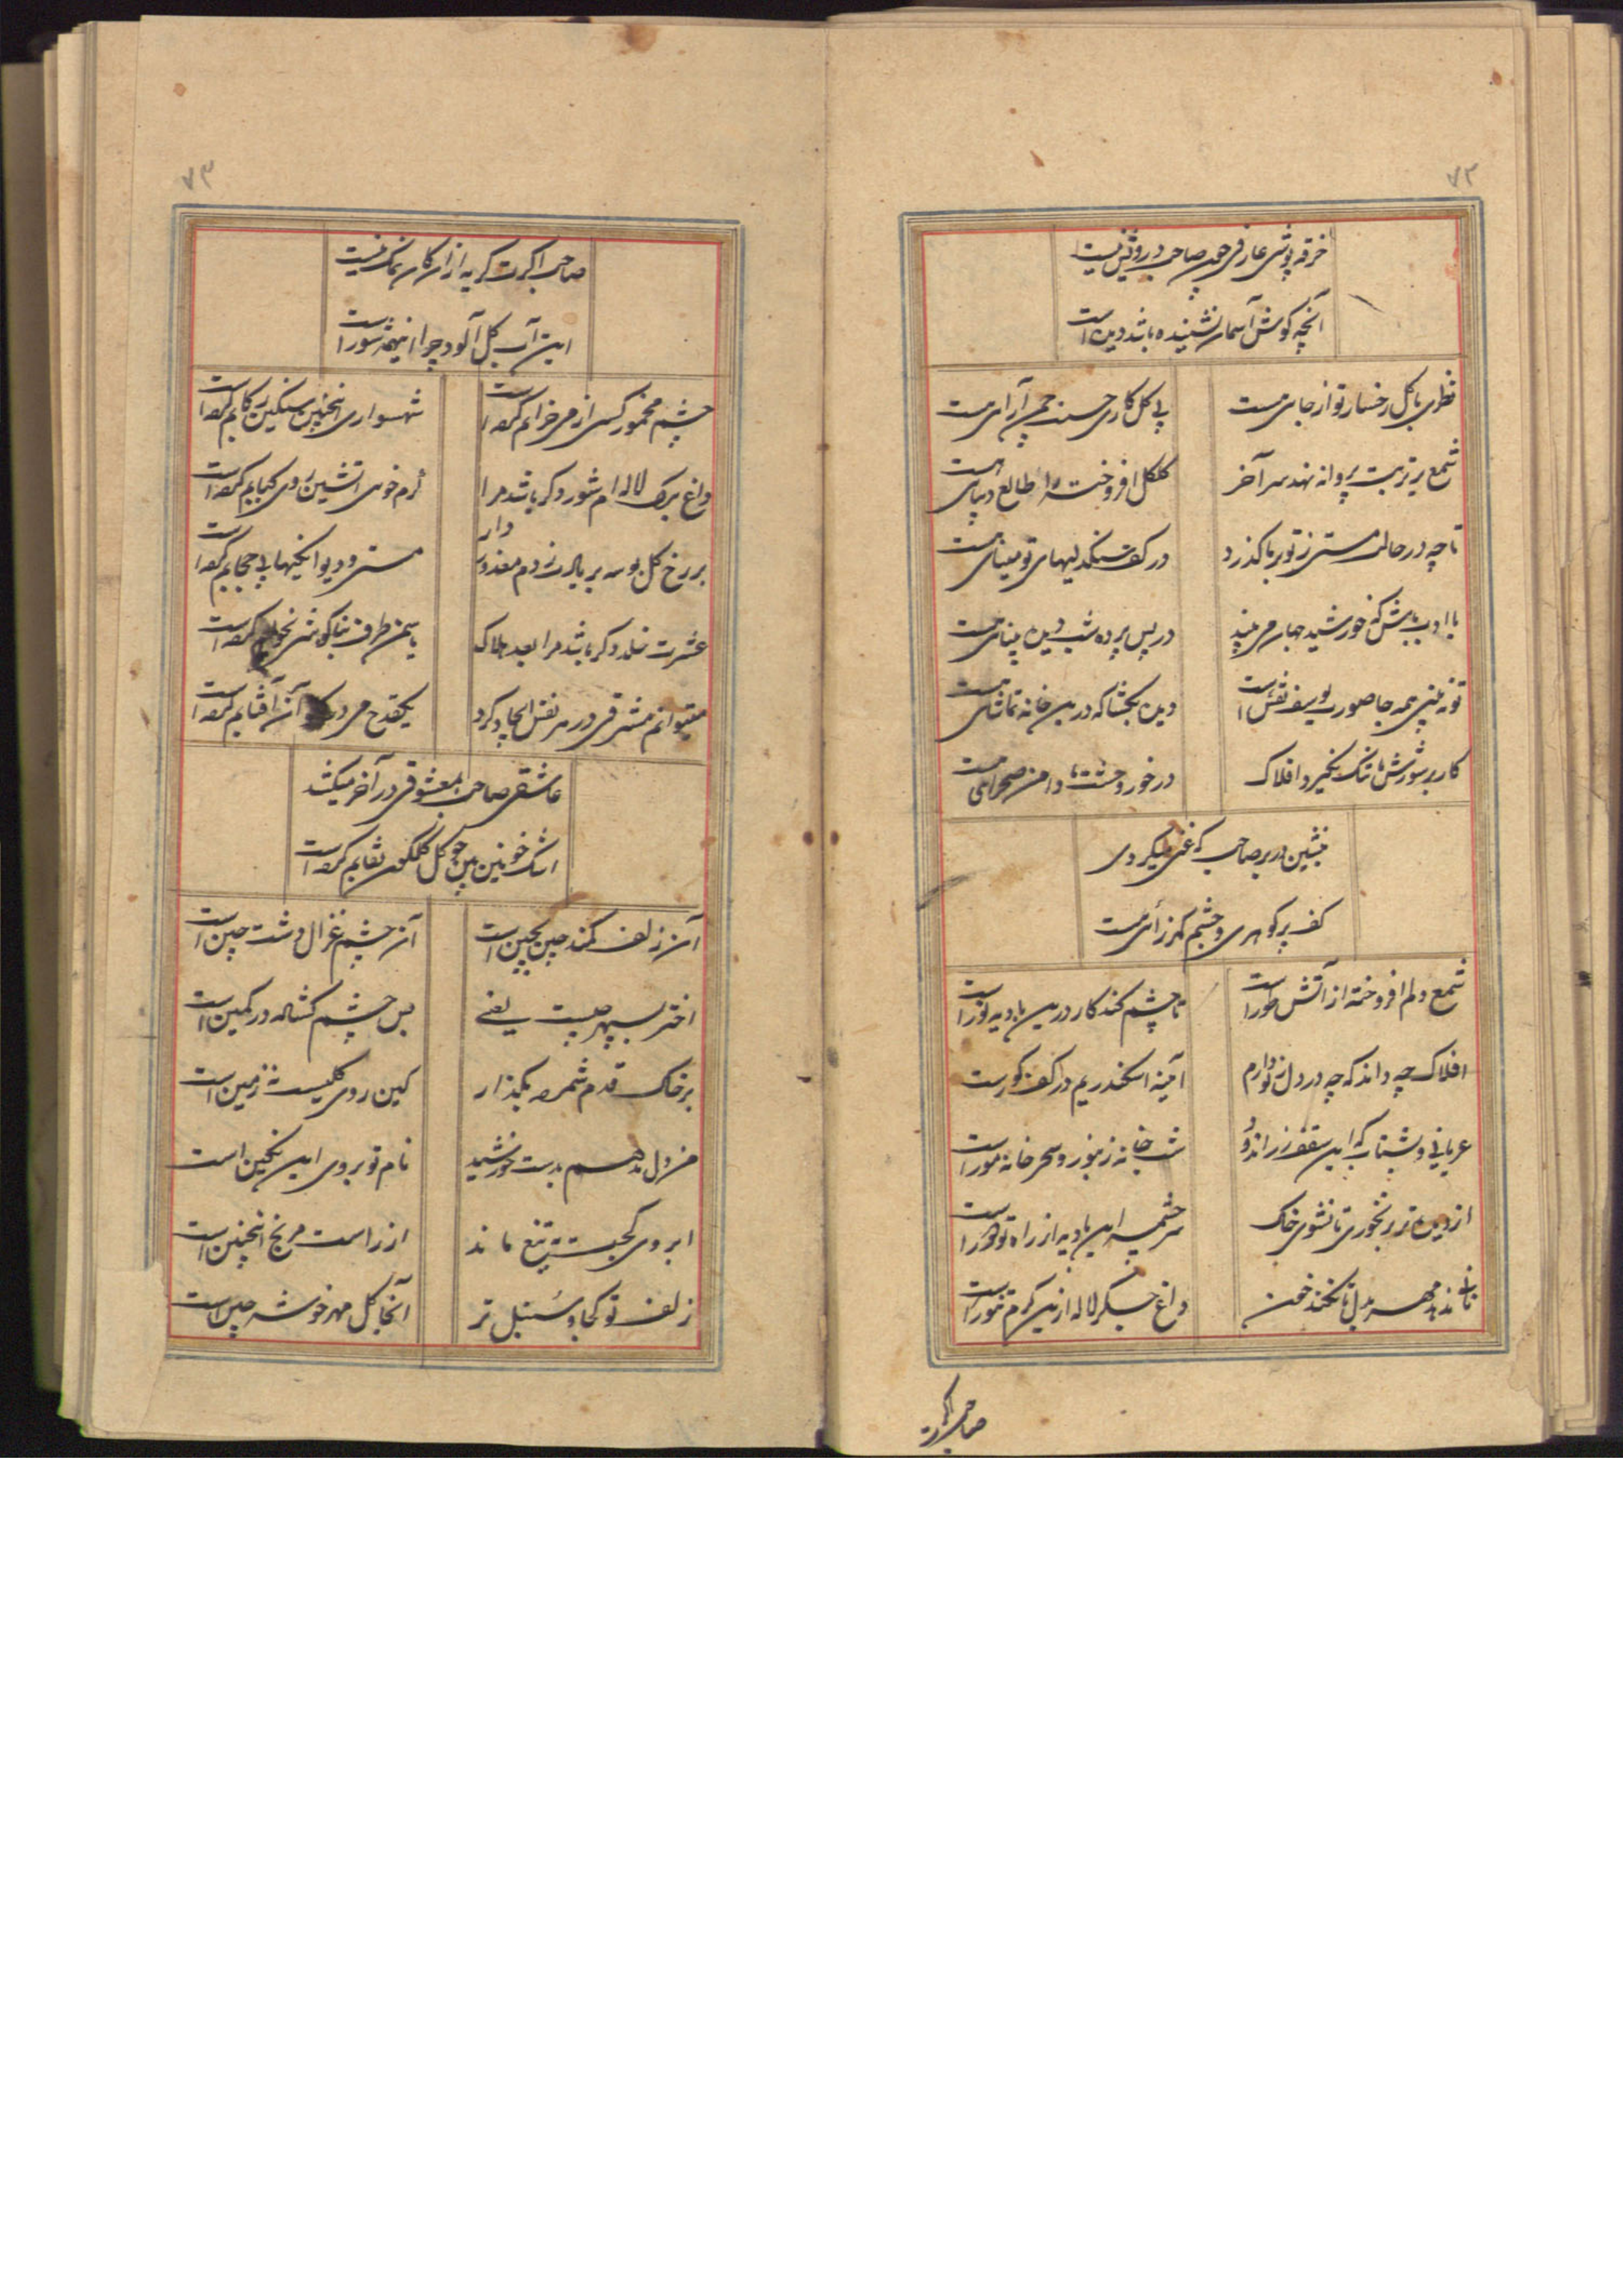 ۷۲
خرقه پوشی عارفی چون صاحب درویش نیست
آنچه گوش آسمان نشنیده باشد دیده است
نظری با گل رخسار تو از جایی هست
پی گل کاری حسنت چمن آرایی هست
شمع بر تربت پروانه نهد سر آخر
گلگل افروخته را طالع دیبایی هست
تا چه در حالت مستی ز تو بر ما گذرد
در کف سنگدلیهای تو مینایی هست
با ادب باش که خورشید جهان می بیند
در پس پرده شب دیده بینایی هست
تو نه بینی همه جا صورت یوسف نقش است
دیده بگشا که درین خانه تماشایی هست
کار بر شورش ما تنک نگیرد افلاک
در خور وحشت ما دامن صحرایی هست
بنشین در بر صاحب که غنی میگردی
کف پر گوهری و چشم گهرزایی هست
شمع دلم افروخته از آتش طور است
تا چشم کند کار درین بادیه نور است
افلاک چه داند که چه در دل ز تو دارم
آئینه اسکندریم در کف کورست
عریانی و بشتاب که این سقف زراندود
شب خانه زنبور و سحر خانه مور است
از دیده تر بر نخوری تا نشوی خاک
سرچشمه این بادیه از راه تو دور است
تاب ندهد مهر بدل تا نکند خون
داغ جگر لاله ازین گرم تنور است
صاحب اگرت
۷۳
صاحب اگرت گریه از آن کان نمک نیست
این آب گل آلود چرا اینهمه شور است
چشم مخمور کسی از می خرابم کرده است
شهسواری اینچنین سنگین رکابم کرده است
داغ برگ لاله ام شور دگر باشد مرا
گرم خوی آتشین روی کبابم کرده است
بر رخ گل بوسه بر یادت زدم معذور دار
مستی و دیوانگیها بی حجابم کرده است
عشرت خلد دگر باشد مرا بعد هلاک
یاسمن طرف بناگوشی بخوابم کرده است
میتوانم مشرقی در هر نفس ایجاد کرد
یکقدح می در آن آفتابم کرده است
عاشقی صاحب بمعشوقی در آخر میکشد
اشک خونین بین چو گل گلگون نقابم کرده است
آن زلف کمند چین بچین است
آن چشم غزال دشت چین است
اختر بسپهر چیست یعنی
بس چشم گشاده در کمین است
بر خاک قدم شمرده بگذار
کین روی کیست نه زمین است
من دل ندهم بدست خورشید
نام تو بروی این نگین است
ابروی کجت بتیغ ماند
از راست مرنج اینچنین است
زلف تو کجا و سنبل تر
آنجا گل مهر خوشه چین است